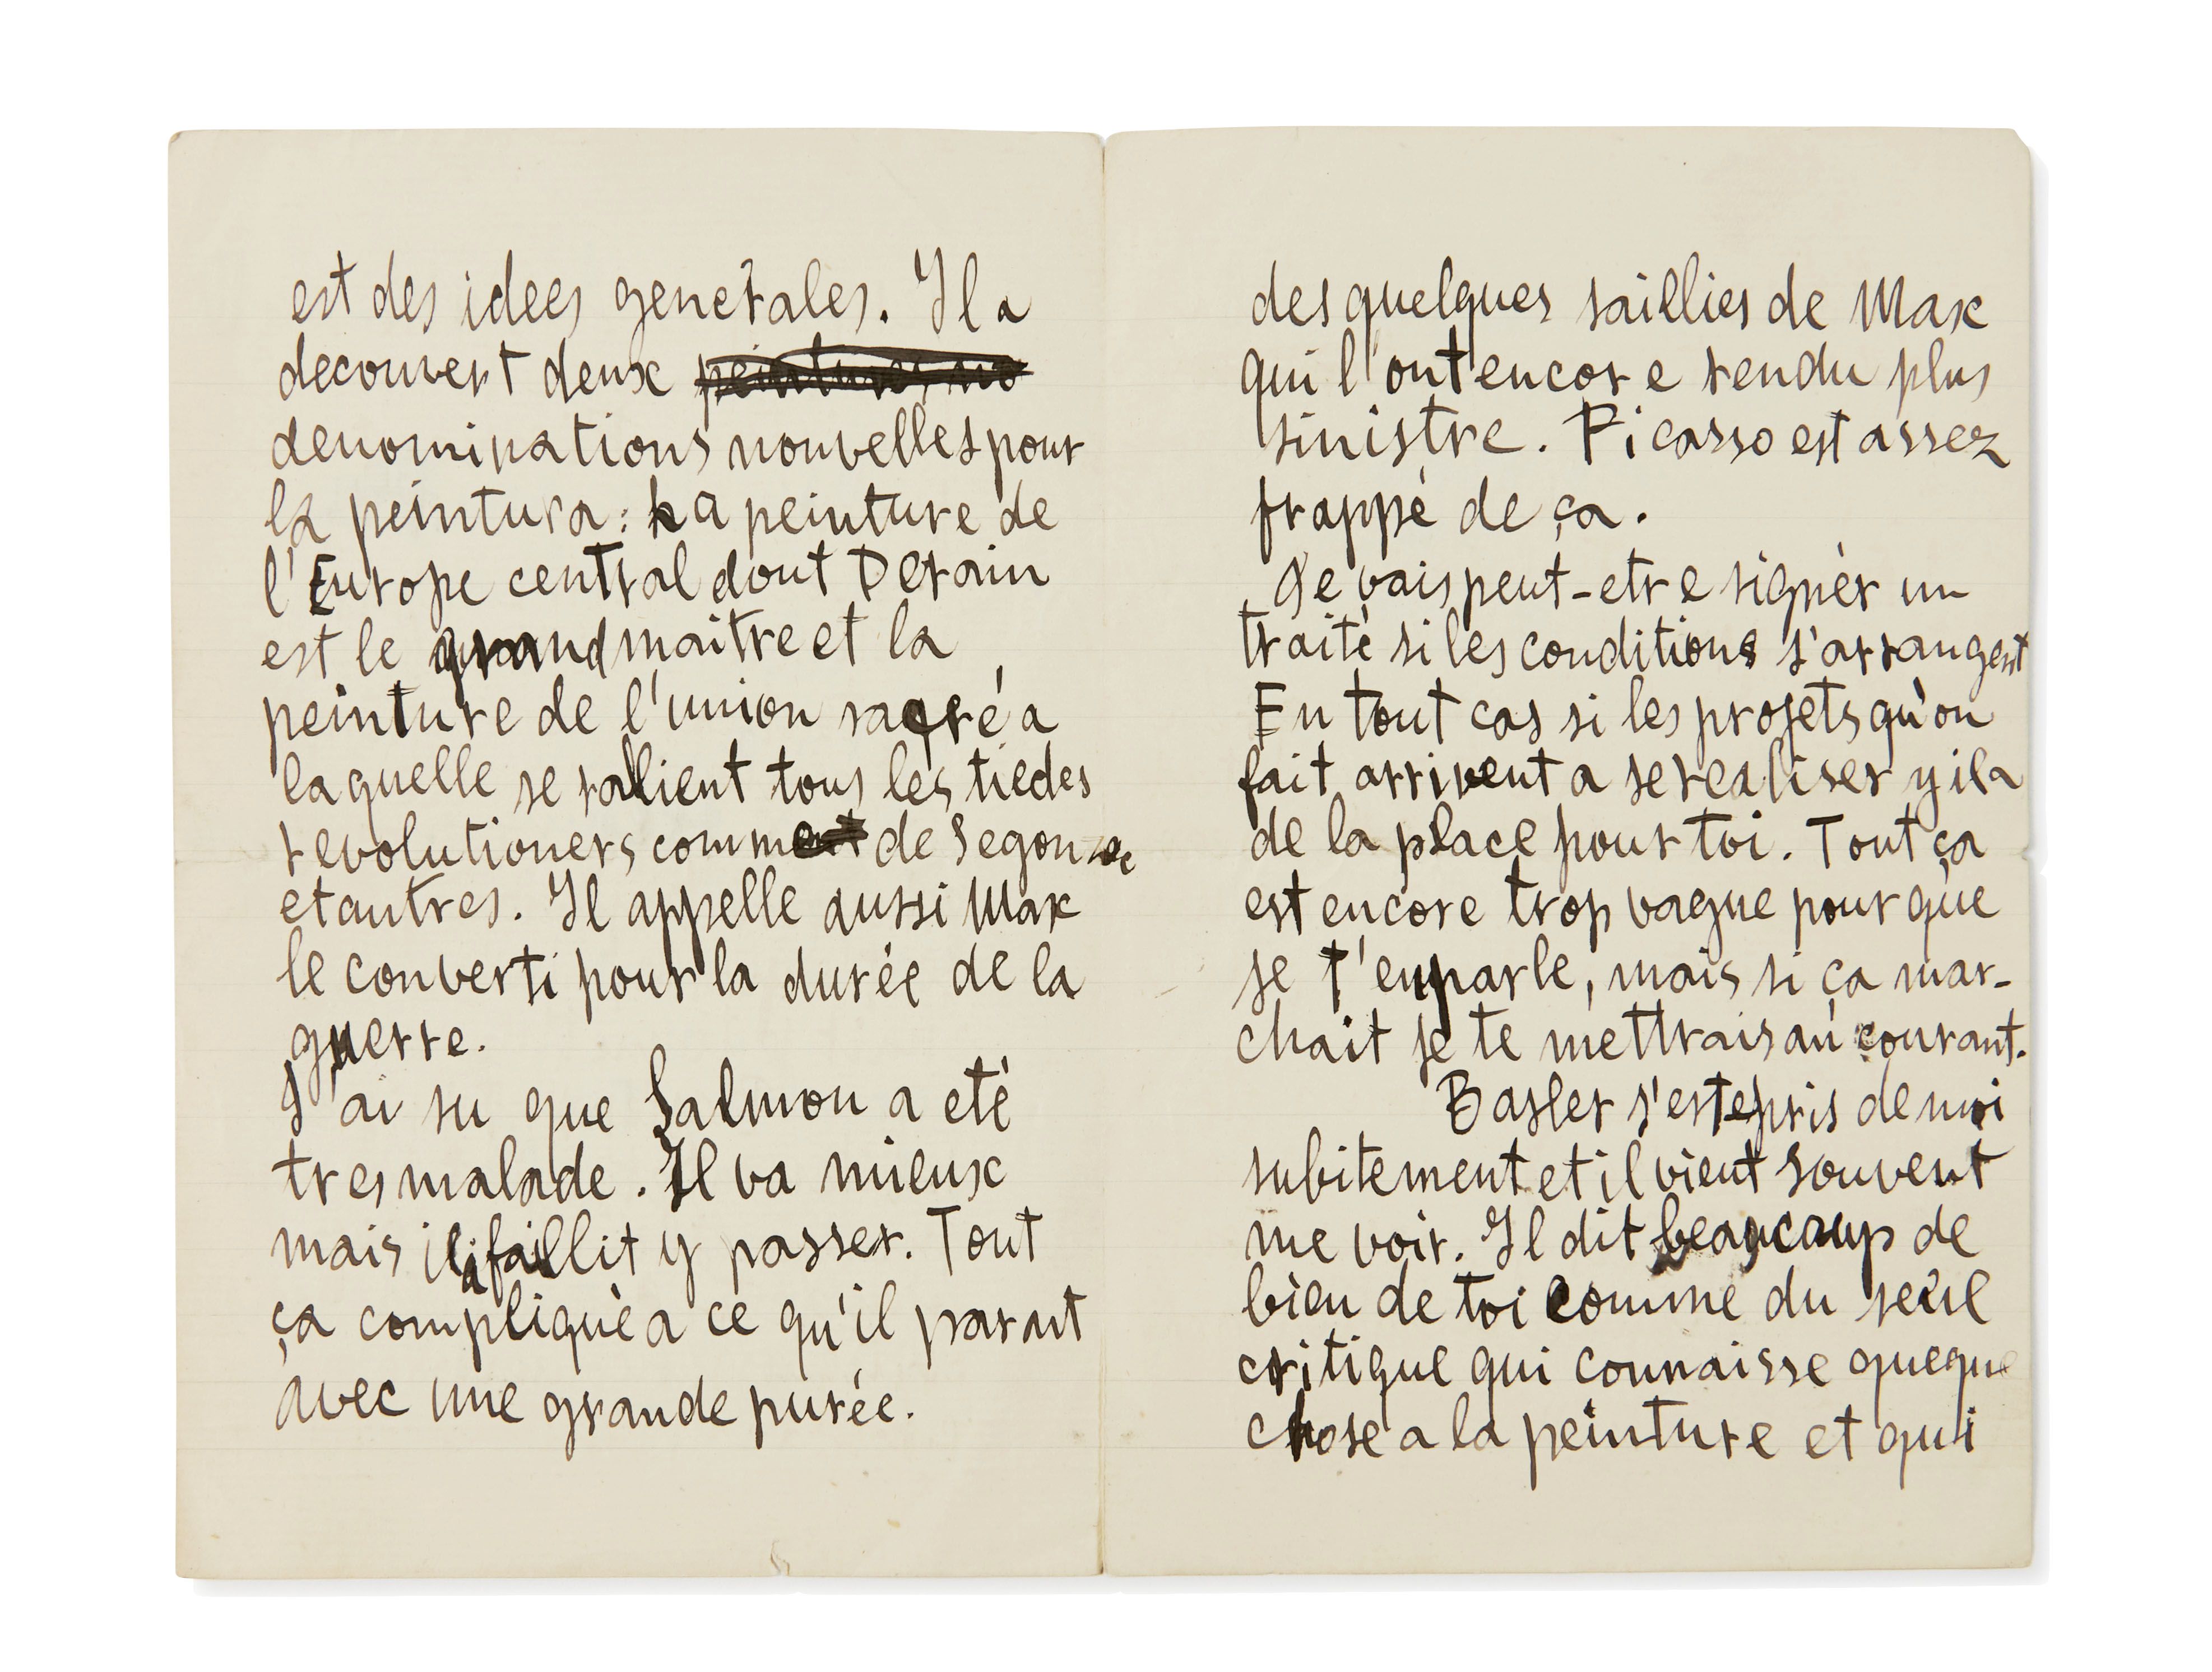 est des idees generales. Il a
decouvert deux peintures no
denominations nouvelles pour
la peintura: La peinture de
l'Europe central dont Derain
est le grand maitre et la
peinture de l'union sacré a
laquelle se ralient tous les tiedes
revolutioners comme de Segonzac
et autres. Il appelle aussi Max
le converti pour la durée de la
guerre.
J'ai su que Salmon a eté
tres malade. Il va mieux
mais il a faillit y passer. Tout
ça compliqué a ce qu'il parait
avec une grande purée.
des quelques saillies de Max
qui l'ont encore rendu plus
sinistre. Picasso est assez
frappé de ça.
Je vais peut-etre signer un
traité si les conditions s'arrangent
En tout cas si les projets qu'on
fait arrivent a se realiser y il a
de la place pour toi. Tout ça
est encore trop vague pour que
je t'en parle, mais si ça mar-
chait je te mettrais au courant.
Basler s'est epris de moi
subitement et il vient souvent
me voir. Il dit beaucoup de
bien de toi comme du seul
critique qui connaisse queque
chose a la peinture et qui